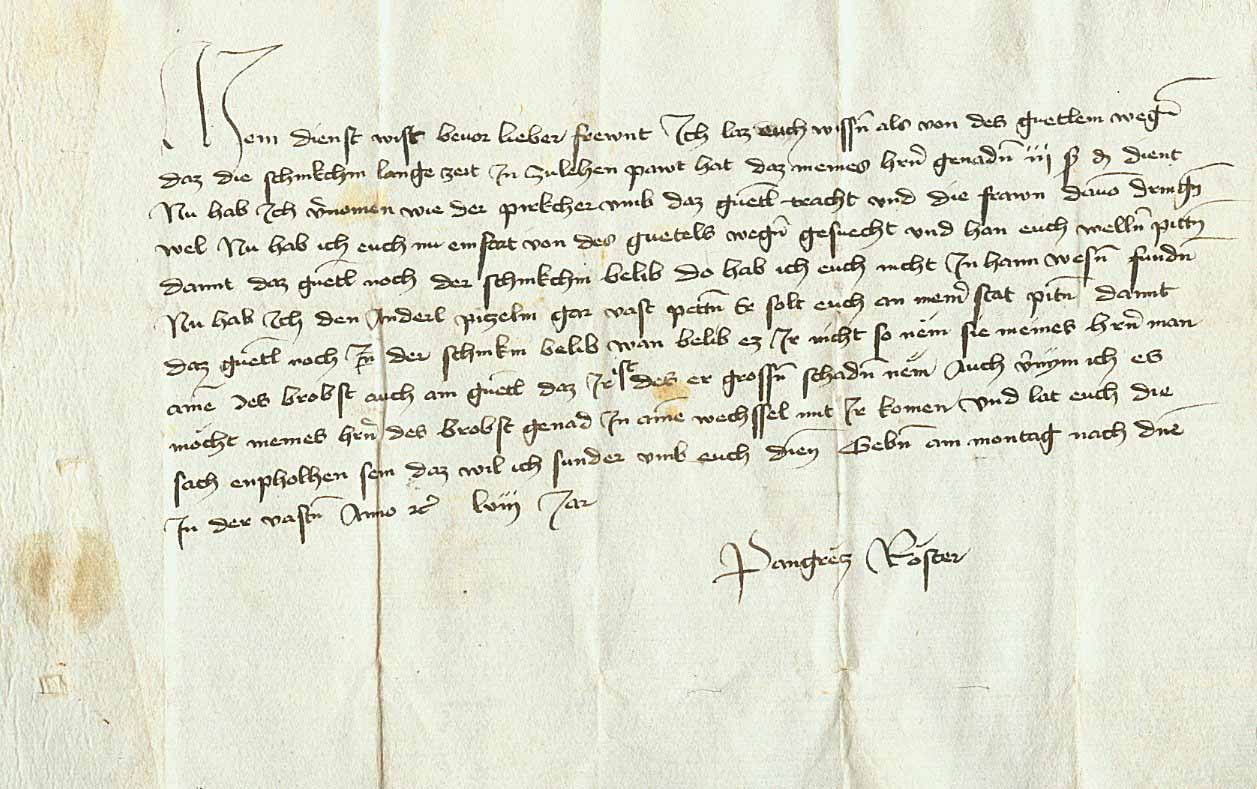 Mein dienst wist bevor lieber frewnt Ich laz euch wissn̄ als von des guetlein wegn̄
daz die schinkchin lange zeit In Zulehen pawt hat daz meines hrn̄ genadn̄ iii ß ₰ dient
Nu hab Ich v̄nomen wie der pirkcher vmb daz guetl teacht vnd die frawn davō dringn̄
wel Nu hab ich euch nu ein stat von des guetels wegn̄ gesuecht vnd han euch welln̄ pittn̄
damit daz guetl noch der schinkchin belib do hab ich euch nicht In haim wesn̄ fundn̄
Nu hab Ich den Anderl pitzelin gar vast petn̄ Er solt euch an meinr̄ stat pitn̄ damit
daz guetl noch In̄ der schinkin belib wan belib ez Ir nicht so nem sie meines hrn̄ man
aine des brobst auch ain guetl daz Ir ist des er grossn̄ schadn̄ nem Auch v̄nym ich es
mocht meines hrn̄ des brobst genad In aine wechssel mit Ir komen Vnd lat euch die
sach enpholhen sein daz wil ich sunder vmb euch dien̄ Gebn̄ am montag nach
In der vastn̄ Anno ꝛc̄ lviii Jar
Pangretz Röster